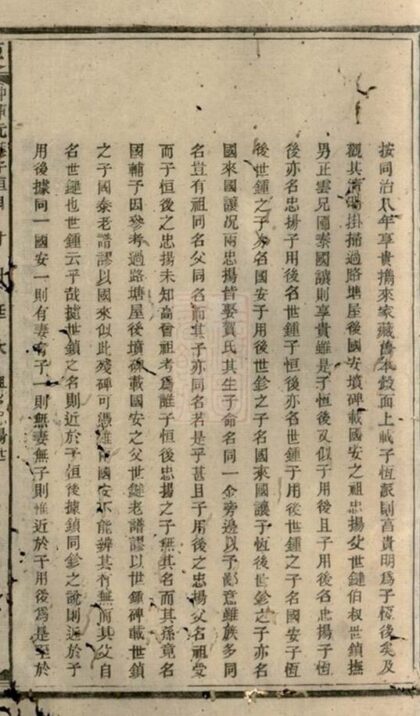 按同治八年享貴攜來家藏舊本殼面上載子恆派則富貴明爲子恆後矣及
觀其清明掛掃過路塘屋後國安墳碑載國安之祖忠揚父世鏈伯叔世鎮撫
男正雲兄國泰國讓則享貴雖是子恆後又似子用後且子用後名忠揚子恆
後亦名忠揚子用後名世鍾子恆後亦名世鍾子用後世鍾之子名國安子恆
後世鍾之子亦名國安子用後世鈐之子名國來國讓子恆後世鈐之子亦名
國來國讓况兩忠揚皆娶賀氏其生子命名同一金旁邊以予鄙意雖族多同
名豈有祖同名父同名而其子亦同名若是乎甚且子用後之忠揚父名祖受
而子恆後之忠揚未知高曾祖考爲誰子恆後忠揚之子無其名而其孫竟名
國輔予因參考過路塘屋後墳碑載國安之父世鏈老譜謬以世鍾碑載世鎮
之子國泰老譜謬以國來似此殘碑可憑雖國安不能辨其有無而其父自
名世鏈也世鍾云乎哉據世鎮之名則近於子恆後據鎮同鈐之說則近於子
用後據同一國安一則有妻有子一則無妻無子則惟近於子用後爲是至於